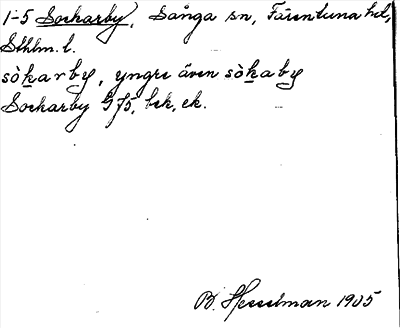 1-5 Sockarby, Sånga sn, Färentuna hd,
Sthlm. l.
sòkarby, yngre även sòkaby
Sockarby G 75, bek, ek.
B. Hesselman 1905